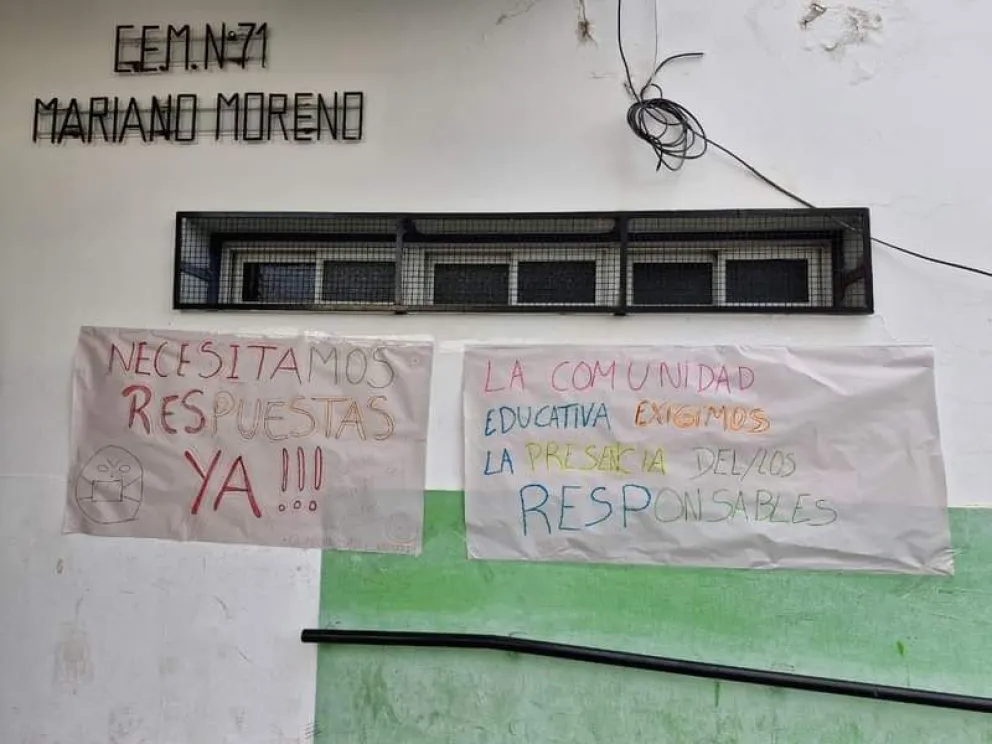 C.E.M. Nº 71
MARIANO MORENO
NECESITAMOS
RESPUESTAS
YA !!!
LA COMUNIDAD
EDUCATIVA EXIGIMOS
LA PRESENCIA DEL/LOS
RESPONSABLES